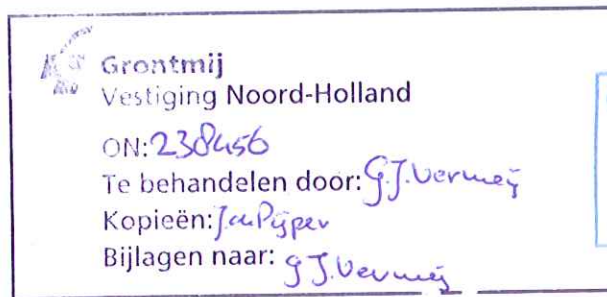 Grontmij
Vestiging Noord-Holland
ON: 238456
Te behandelen door: G.J. Vermeij
Kopieën: J. de Pijper
Bijlagen naar: G.J. Vermeij